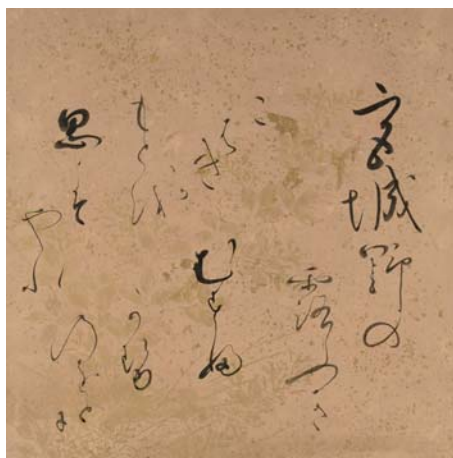 宮城野の
露ふき
むすふ
かせ
のをとに
こ
はきか
もとを
思こそ
やれ